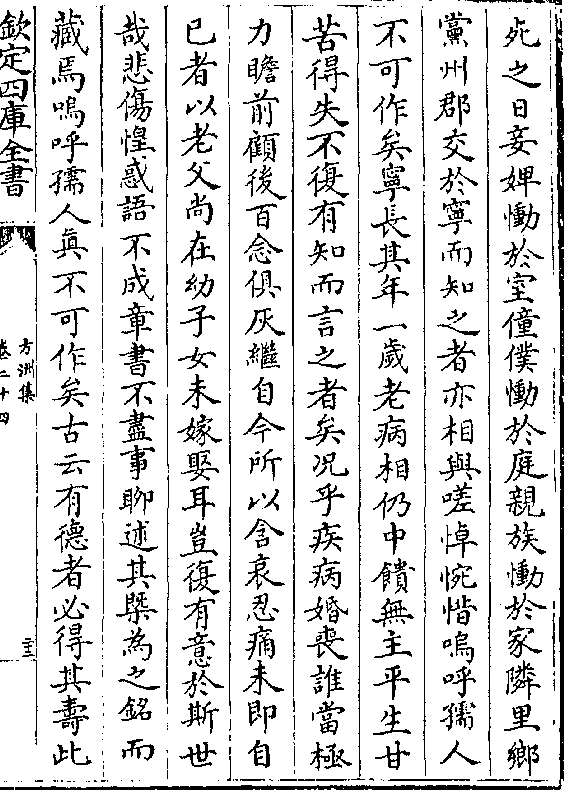 歿之日妾婢慟於室僮僕慟於庭親族慟於家隣里鄉
黨州郡交於寧而知之者亦相與嗟悼惋惜嗚呼孺人
不可作矣寧長其年一歲老病相仍中饋無主平生甘
苦得失不復有知而言之者矣况乎疾病婚喪誰當極
力瞻前顧後百念俱灰繼自今所以含哀忍痛未即自
已者以老父尚在幼子女未嫁娶耳豈復有意於斯世
哉悲傷惶惑語不成章書不盡事聊述其槩為之銘而
藏焉嗚呼孺人眞不可作矣古云有德者必得其壽此
欽定四庫全書
方洲集
卷二十四